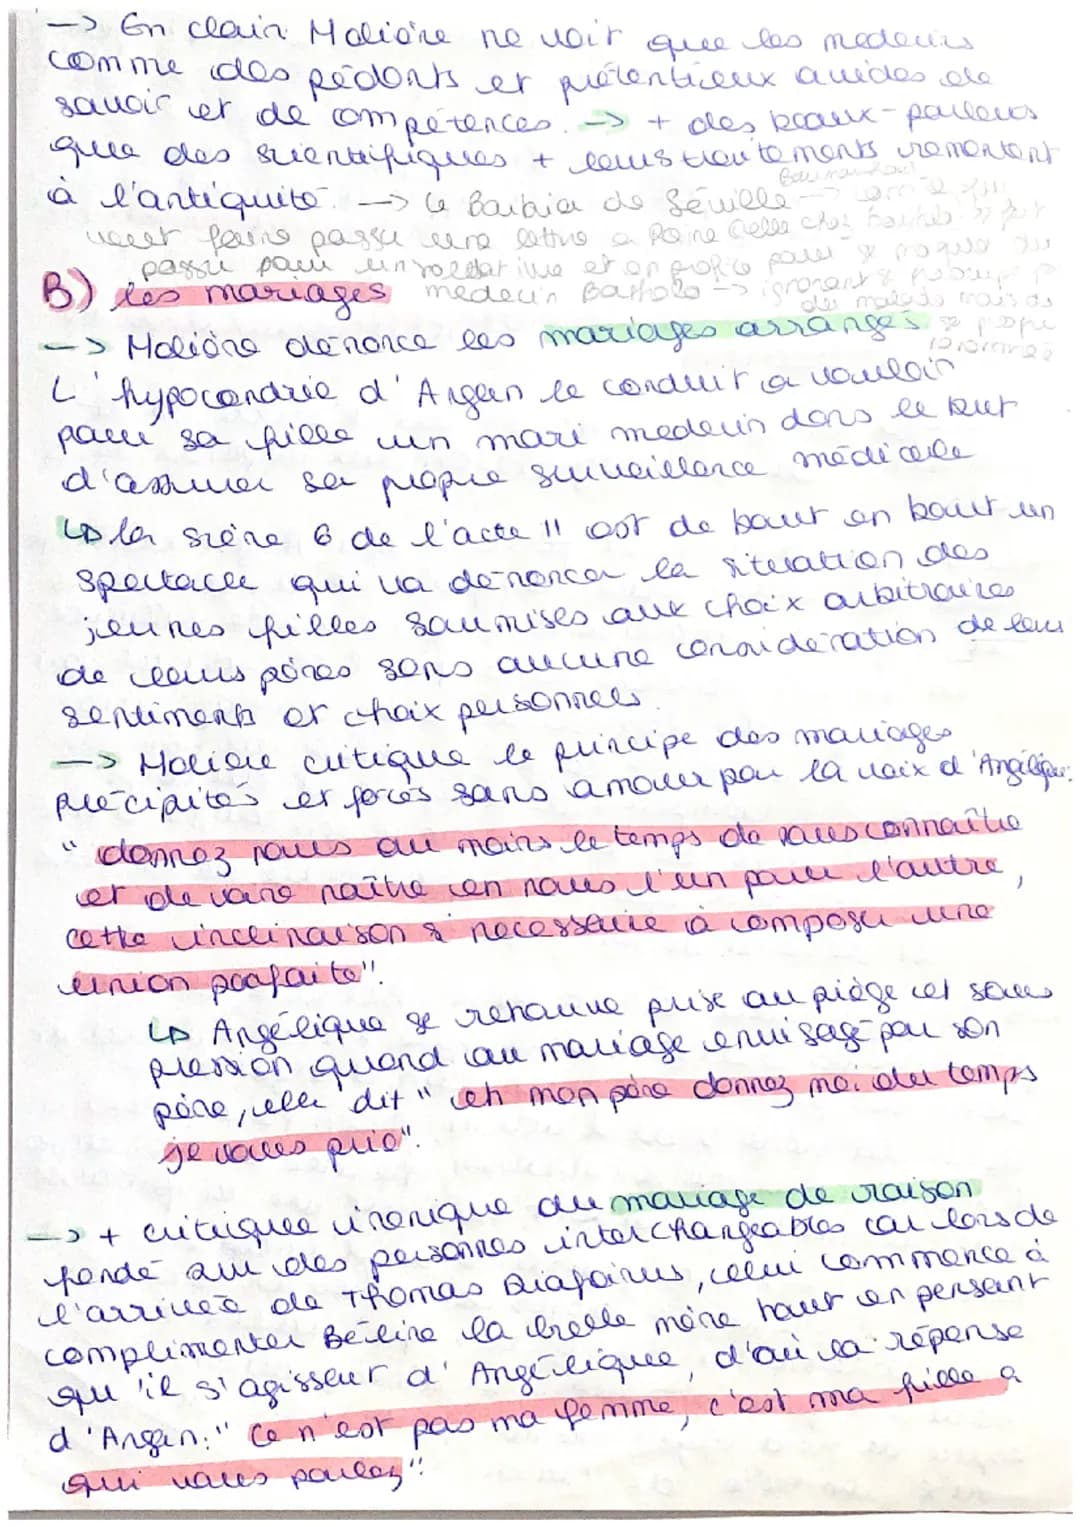 -> En clair Molière ne voit que les medecins
comme des pédants et prétentieux avides de
savoir et de compétences. -> + des beaux-parleurs
que des scientifiques + leurs traitements remontent
à l'antiquité. -> Le Barbier de Séville ->
veut faire passer une lettre a
passer pour un soldat ivre et on profite pour se moquer du
medecin Bartholo -> ignorant &
B) les mariages
-> Molière dénonce les mariages arrangés
L'hypocondrie d'Argan le conduit a vouloir
pour sa fille un mari medecin dans le but
d'assurer sa propre surveillance médicale
↳ la scène 6 de l'acte II est de bout en bout un
spectacle qui va dénoncer la situation des
jeunes filles soumises aux choix arbitraires
de leurs pères sans aucune considération de leur
sentiments et choix personnels.
-> Molière critique le principe des mariages
précipités et forcés sans amour par la voix d'Angélique:
" donnez nous au moins le temps de nous connaître
et de voire naître en nous l'un pour l'autre,
cette inclinaison si necessaire à composer une
union parfaite".
↳ Angélique se retrouve prise au piège et sous
pression quand au mariage envisagé par son
père, elle dit " eh mon père donnez moi du temps
je vous prie".
-> + critique ironique du mariage de raison
fondé sur des personnes interchangeables car lors de
l'arrivée de Thomas Diafoirus, celui commence à
complimenter Béline la belle mère tout en pensant
qu'il s'agisseut d'Angélique, d'où la réponse
d'Argan: " Ce n'est pas ma femme, c'est ma fille a
qui vous parlez".